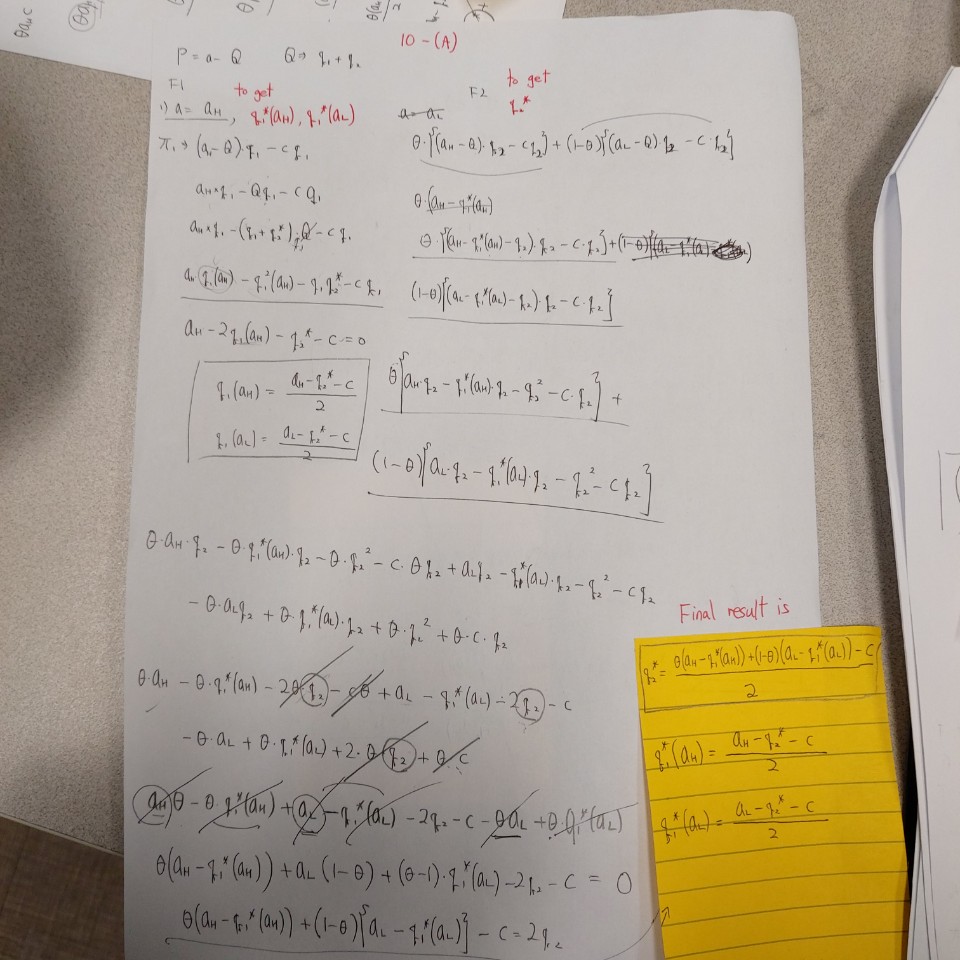 θaH C
10-(A)
P = a - Q Q ⇒ q₁ + q₂
F1
to get
1) a = aH, q₁*(aH), q₁*(aL)
π₁ ⇒ (a₁-Q)·q₁ - cq₁
aH×q₁ - Qq₁ - CQ₁
aH×q₁ - (q₁+q₂*)·q₁ - cq₁
aH q₁(aH) - q₁²(aH) - q₁q₂* - cq₁
aH - 2q₁(aH) - q₂* - c = 0
q₁(aH) = (aH - q₂* - c)/2
q₁(aL) = (aL - q₂* - c)/2
F2
to get
q₂*
a = aL
θ·{(aH-Q)·q₂ - cq₂} + (1-θ){(aL-Q)·q₂ - C·q₂}
θ·(aH - q₁*(aH)
θ·{(aH - q₁*(aH) - q₂)·q₂ - c·q₂} + (1-θ){(aL - q₁*(a
(1-θ){(aL - q₁*(aL) - q₂)·q₂ - c·q₂}
θ{aH·q₂ - q₁*(aH)·q₂ - q₂² - c·q₂} +
(1-θ){aL·q₂ - q₁*(aL)·q₂ - q₂² - cq₂}
θ·aH·q₂ - θ·q₁*(aH)·q₂ - θ·q₂² - c·θq₂ + aLq₂ - q₁*(aL)·q₂ - q₂² - cq₂
- θ·aLq₂ + θ·q₁*(aL)·q₂ + θ·q₂² + θ·c·q₂
θ·aH - θ·q₁*(aH) - 2θq₂ - cθ + aL - q₁*(aL) - 2q₂ - c
- θ·aL + θ·q₁*(aL) + 2·θq₂ + θ·c
aHθ - θ·q₁*(aH) + aL - q₁*(aL) - 2q₂ - c - θaL + θ·q₁*(aL)
θ(aH - q₁*(aH)) + aL(1-θ) + (θ-1)·q₁*(aL) - 2q₂ - c = 0
θ(aH - q₁*(aH)) + (1-θ){aL - q₁*(aL)} - c = 2q₂
Final result is
q₂* = (θ(aH - q₁*(aH)) + (1-θ)(aL - q₁*(aL)) - c)/2
q₁*(aH) = (aH - q₂* - c)/2
q₁*(aL) = (aL - q₂* - c)/2